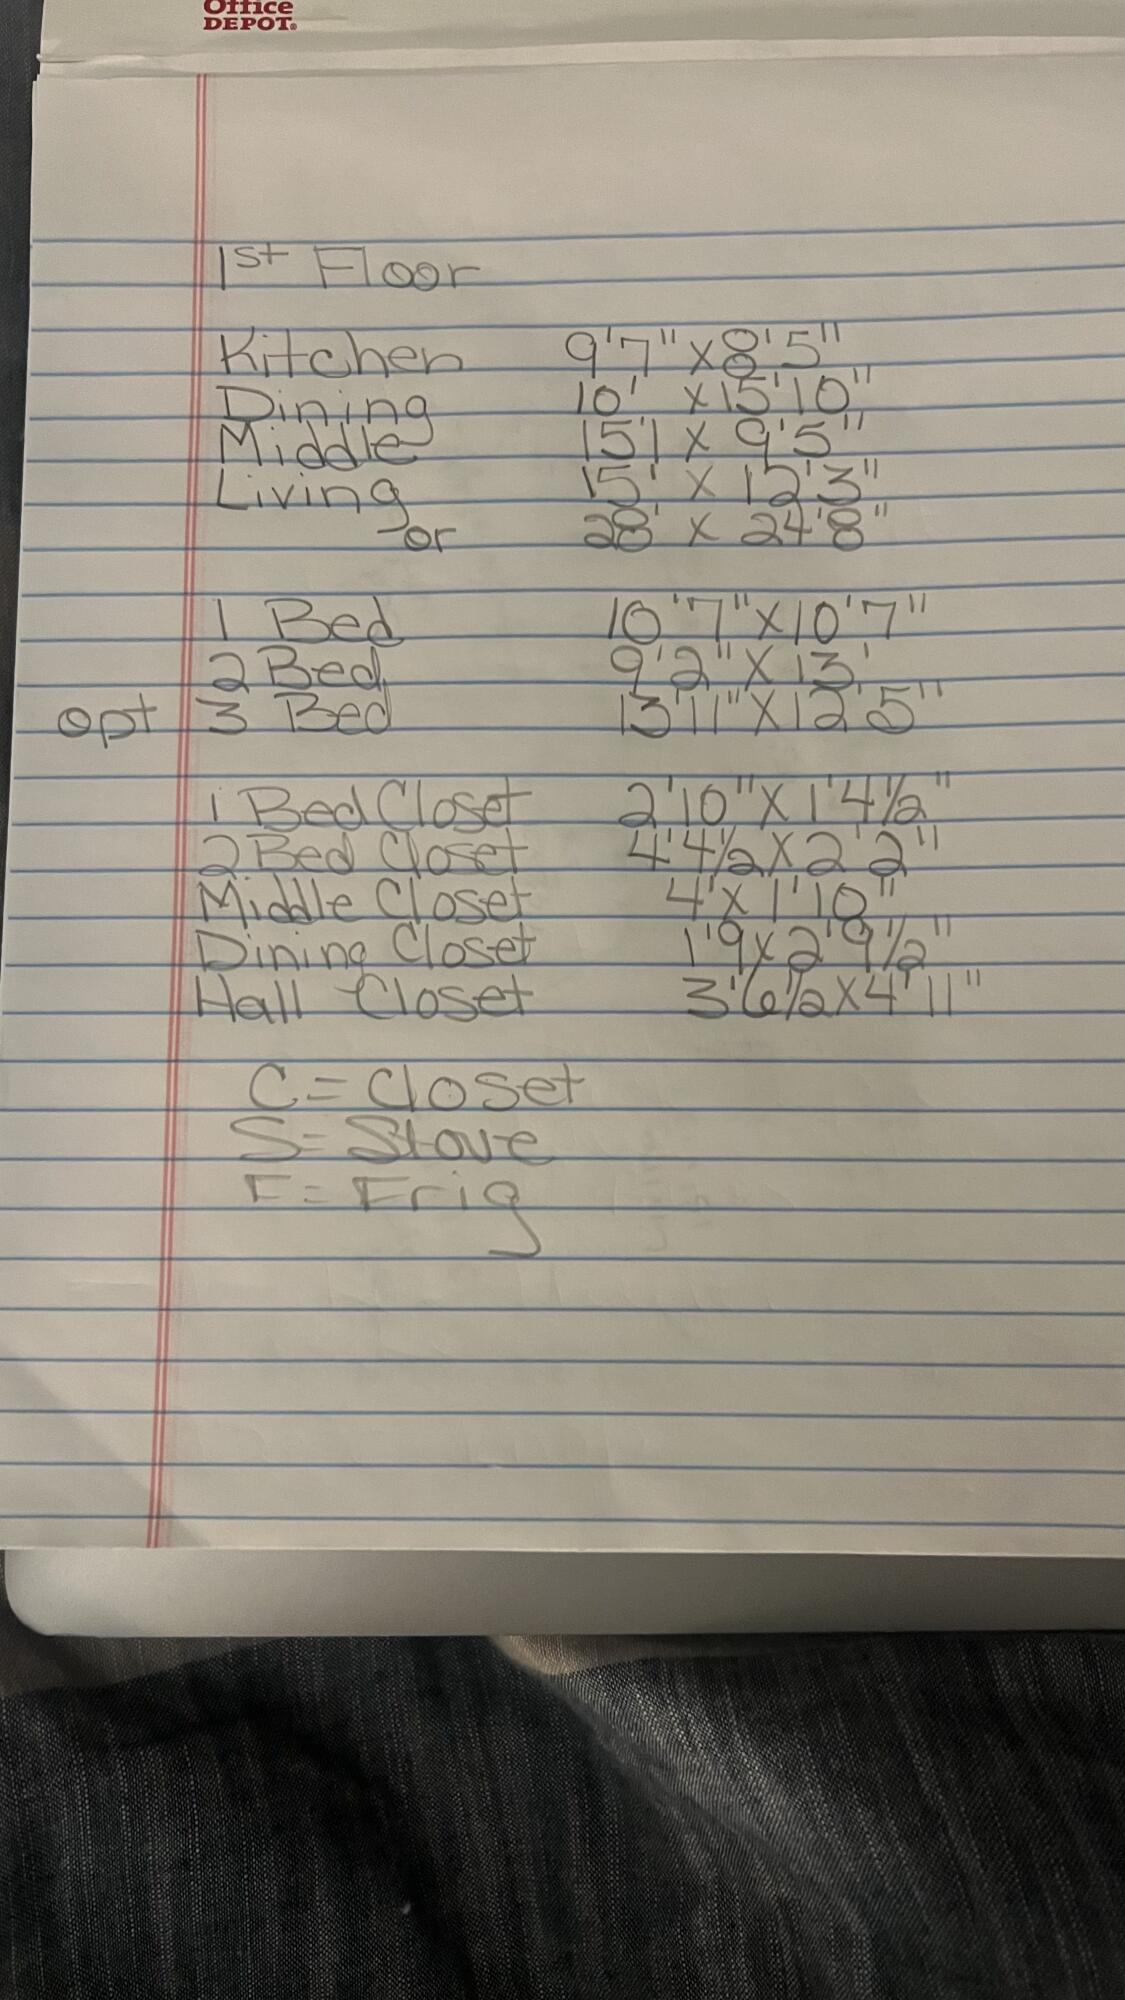 Office
DEPOT®
1st Floor
Kitchen 9'7" x 8'5"
Dining 10' x 15'10"
Middle 15'1 x 9'5"
Living 15' x 12'3"
or 28' x 24'8"
1 Bed 10'7" x 10'7"
2 Bed 9'2" x 13'
opt 3 Bed 13'11" x 12'5"
1 Bed Closet 2'10" x 1'4½"
2 Bed Closet 4'4½ x 2'2"
Middle Closet 4' x 1'10"
Dining Closet 1'9 x 2'9½"
Hall Closet 3'6½ x 4'11"
C = Closet
S = Stove
F = Frig